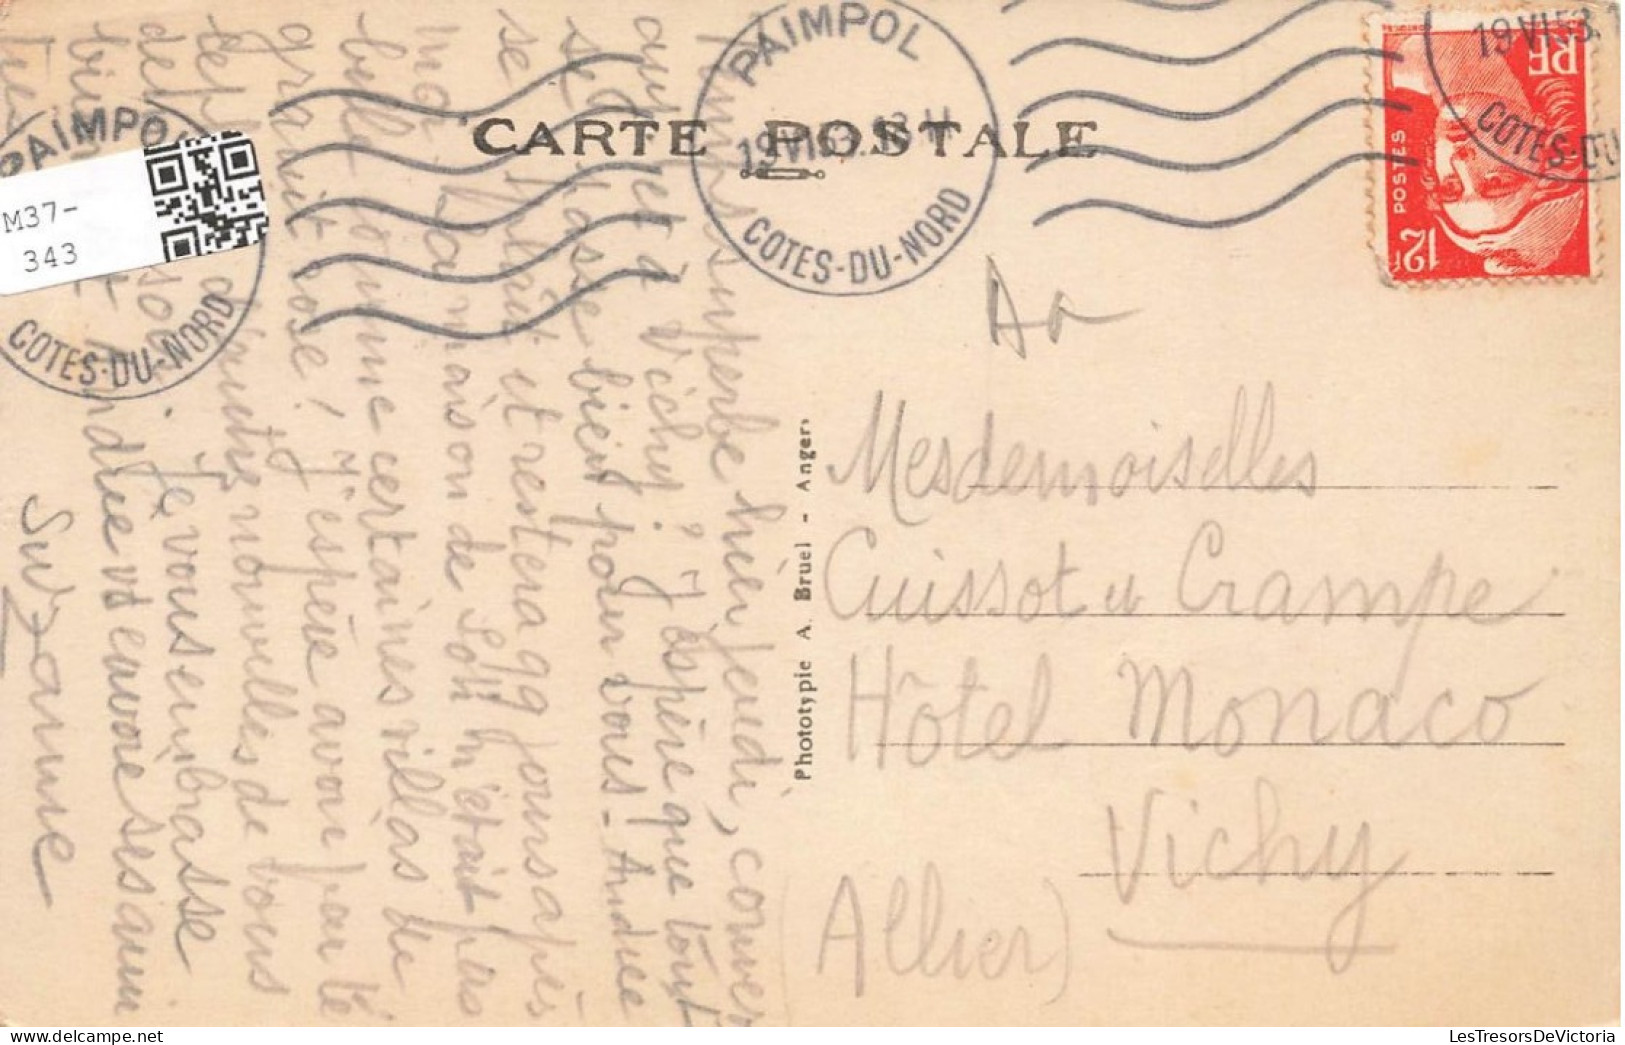 CARTE POSTALE
PAIMPOL
COTES-DU-NORD
PAIMPOL
COTES-DU-NORD
19 VI 53
COTES-DU
RF
POSTES
12f
M37-
343
Phototypie A. Bruel - Angers
Mesdemoiselles
Cuissot et Crampe
Hôtel Monaco
Vichy
(Allier)
superbe hier jeudi, comment
à Vichy ? J'espère que tout
se passe bien pour vous - Andrée
et restera 99 jours après
maison de n'était pas
belle comme certaines villas de
granit rose ! J'espère avoir par té
d'autre nouvelles de vous
Je vous embrasse
Andrée vs envoie ses ami
Suzanne
LesTresorsDeVictoria.com